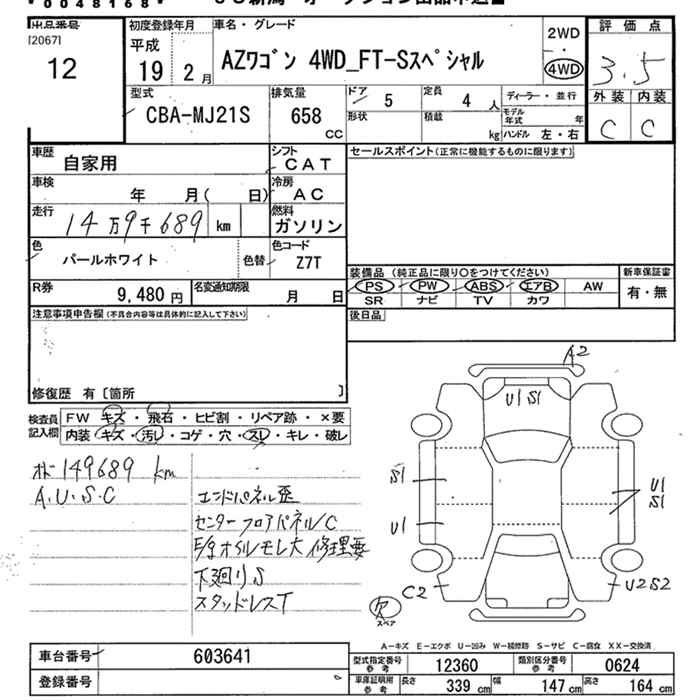 * 0048168 *
出品番号
[20671
12
初度登録年月
平成
19 2 月
車名・グレード
AZワゴン 4WD_FT-Sスペシャル
2WD
・
4WD
評価点
3.5
外装 内装
C C
型式
CBA-MJ21S
排気量
658
CC
ドア 5
定員 4 人
形状
積載 kg
ディーラー・並行
モデル年式 年
ハンドル 左・右
車歴 自家用
シフト CAT
車検 年 月( 日)
冷房 AC
走行 14万9千689 km
燃料 ガソリン
色 パールホワイト
色替
色コード Z7T
R券 9,480 円
名変通知期限 月 日
セールスポイント(正常に機能するものに限ります)
装備品 (純正品に限り○をつけてください)
PS PW ABS エアB AW
SR ナビ TV カワ
新車保証書
有・無
後日品
注意事項申告欄 (不具合内容等は具体的に記入して下さい)
修復歴 有 [箇所 ]
検査員記入欄
FW キズ・飛石・ヒビ割・リペア跡・×要
内装 キズ・汚レ・コゲ・穴・スレ・キレ・破レ
149689 km
A.U.S.C
エンドパネル歪
センターフロアパネル/C
E/gオイルモレ大 修理要
下廻りS
スタッドレスT
A2
U1 S1
S1
U1
U1
S1
C2
U2S2
欠
スペア
A-キズ E-エクボ U-凹み W-補修跡 S-サビ C-腐食 XX-交換済
車台番号 603641
登録番号
型式指定番号 参考 12360
類別区分番号 参考 0624
車庫証明用 参考 長さ 339 cm 幅 147 cm 高さ 164 cm